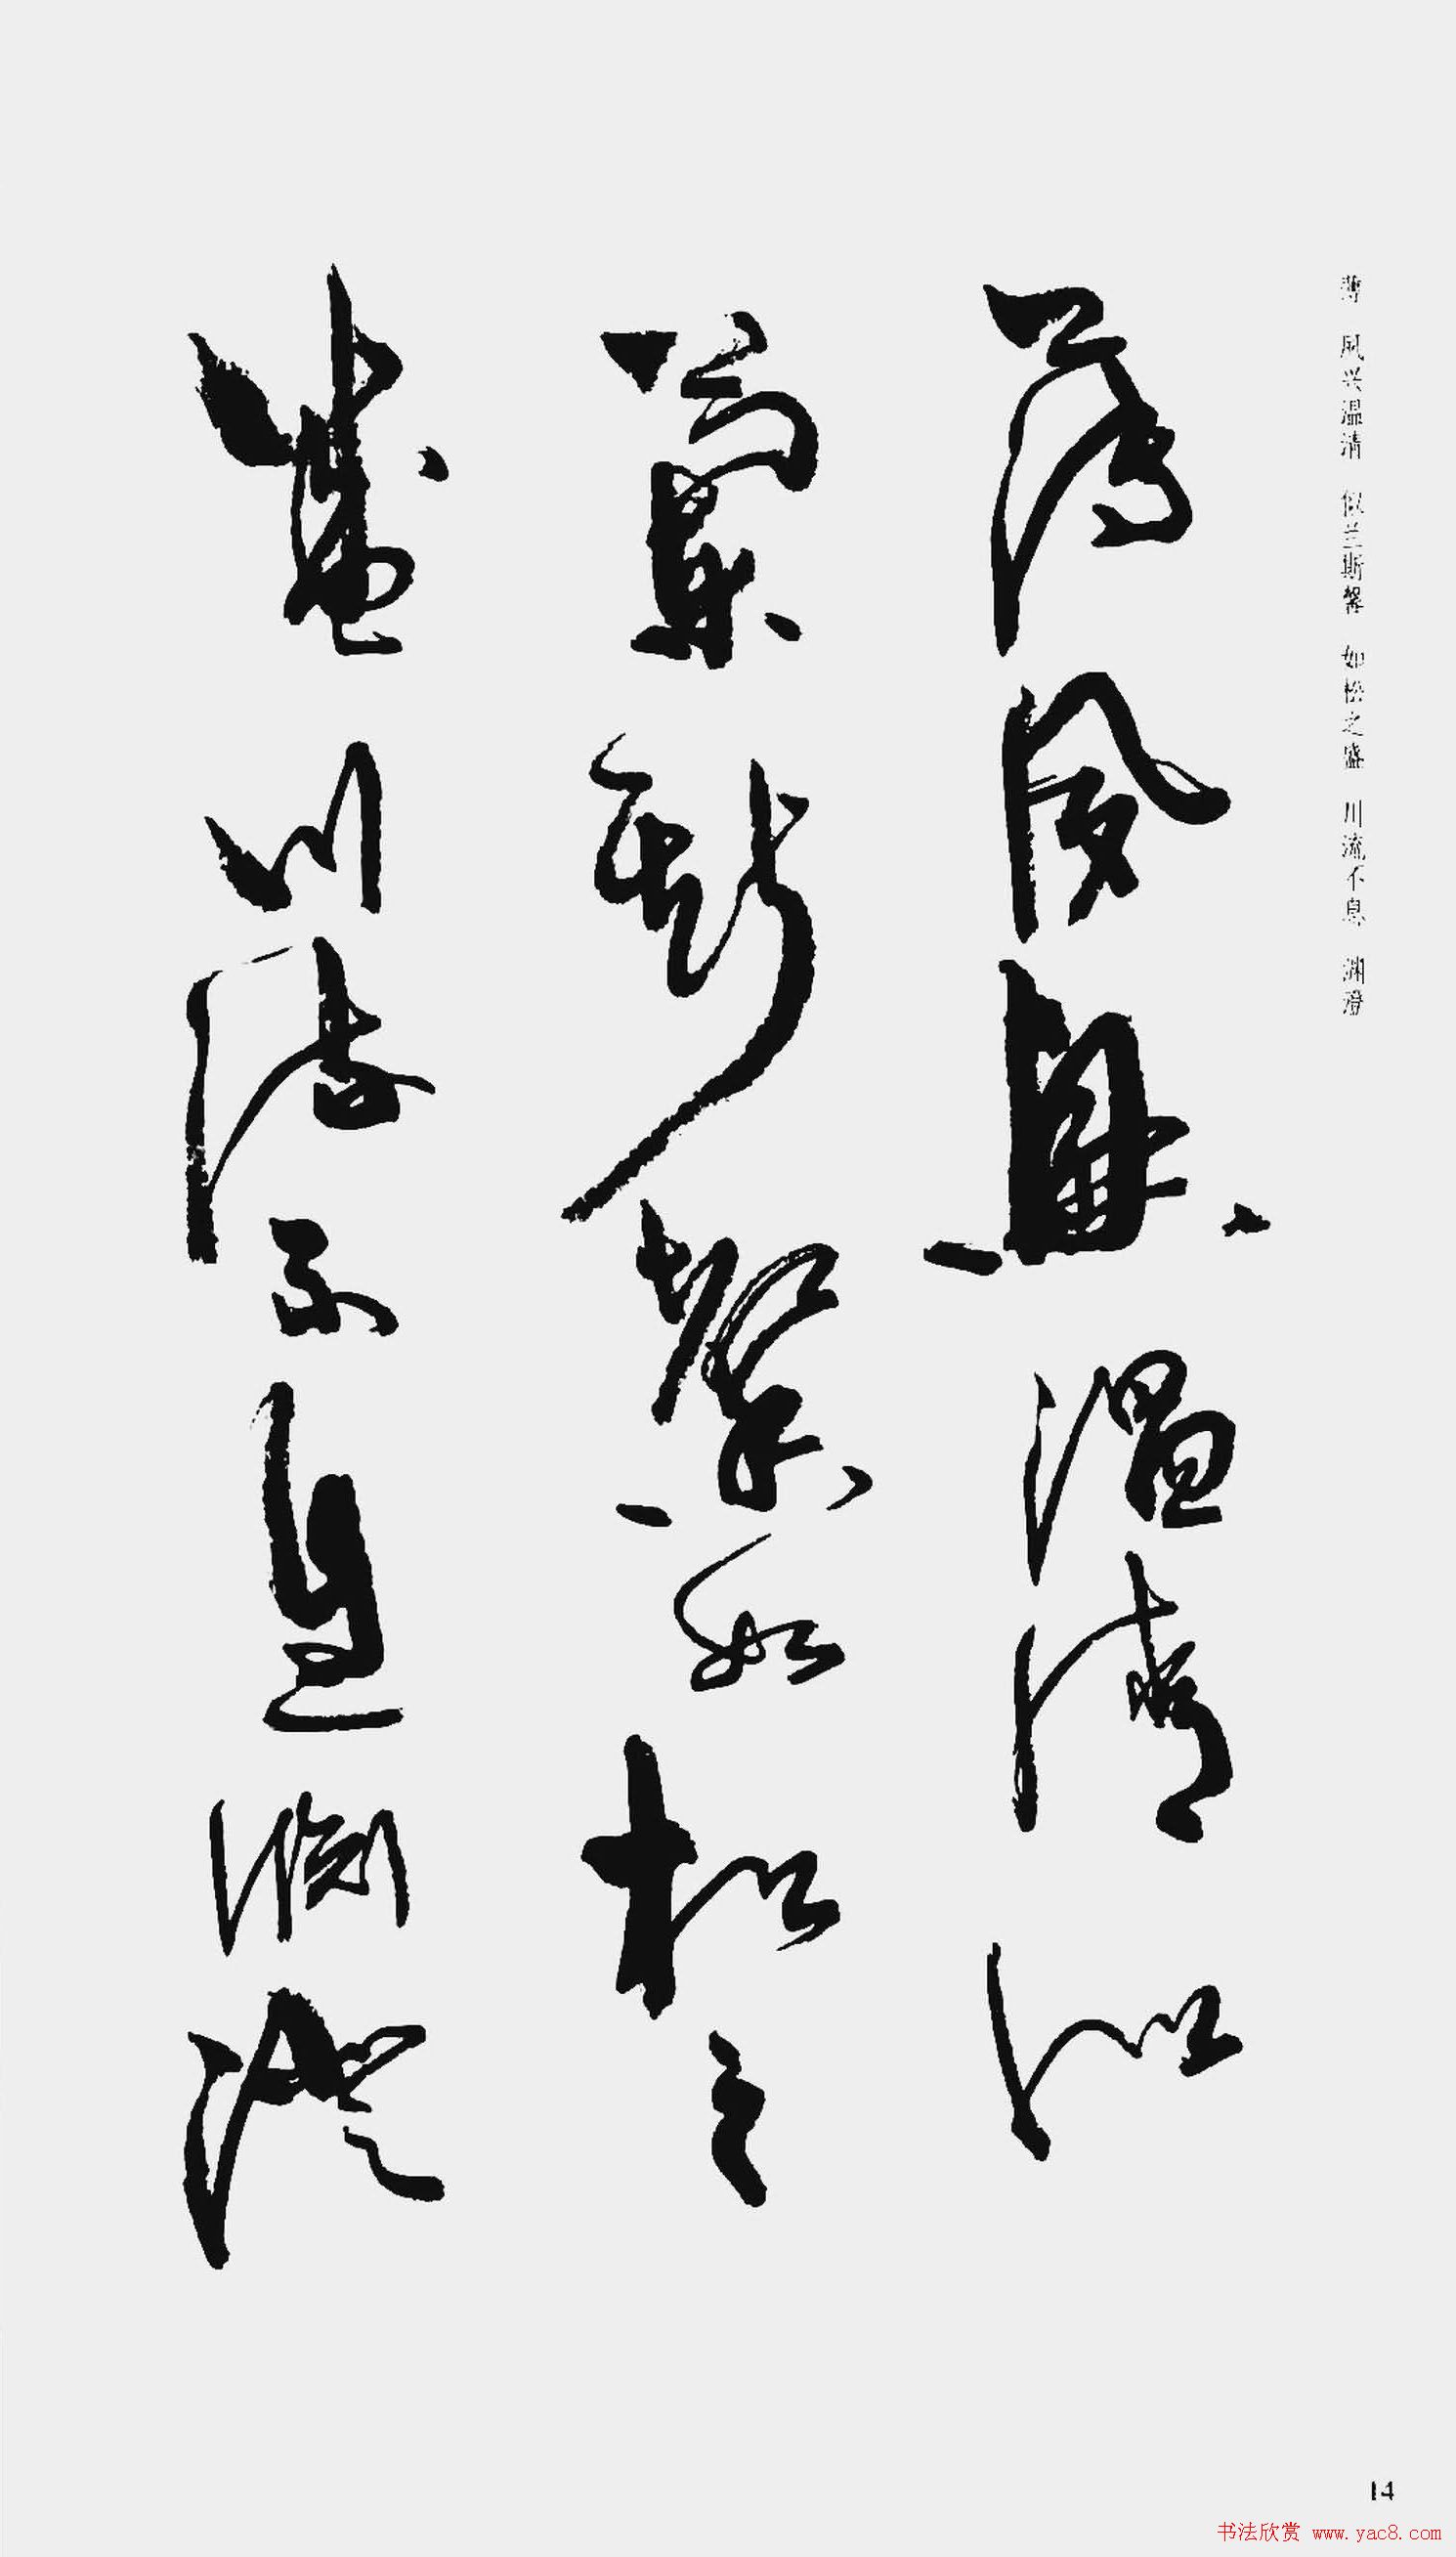 薄 夙兴温清 似兰斯馨 如松之盛 川流不息 渊澄
薄夙興温清似
蘭斯馨如松之
盛川流不息淵澄
14
书法欣赏 www.yac8.com